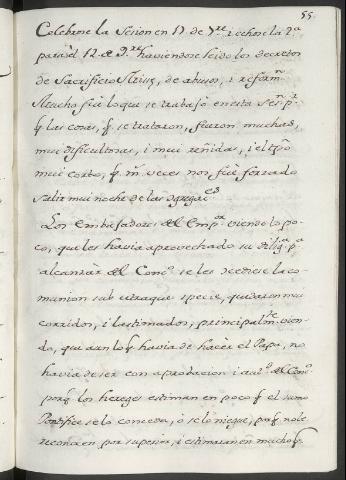 55.
Celebrose la Sesion en 17 de 7re i echose la 2ª
para el 12 de 9re haviendose leido los decretos
de Sacrificio Missæ, de abusos, i reformn
Mucho fuè lo que se trabajò en esta Sesn pr
q las cosas, q se trataron, fueron muchas,
mui dificultosas, i mui reñidas, i el tpo
mui corto, q ms veces nos fuè forzado
salir mui noche de las Agregaces
Los Embajadores del Empor viendo lo po-
co, que les havia aprovechado su diligª pª
alcanzàr del Conco se les concediese la co-
munion sub utraque specie, quedaron mui
corridos, i lastimados, principalmte vien-
do, que aun lo q havia de hacèr el Papa, no
havia de ser con aprobacion i autd del Conco
porq los hereges estiman en poco q el sumo
Pontifice se lo conceda, ò se lo niegue, porq no le
reconocen por superior, i estimaran en mucho q